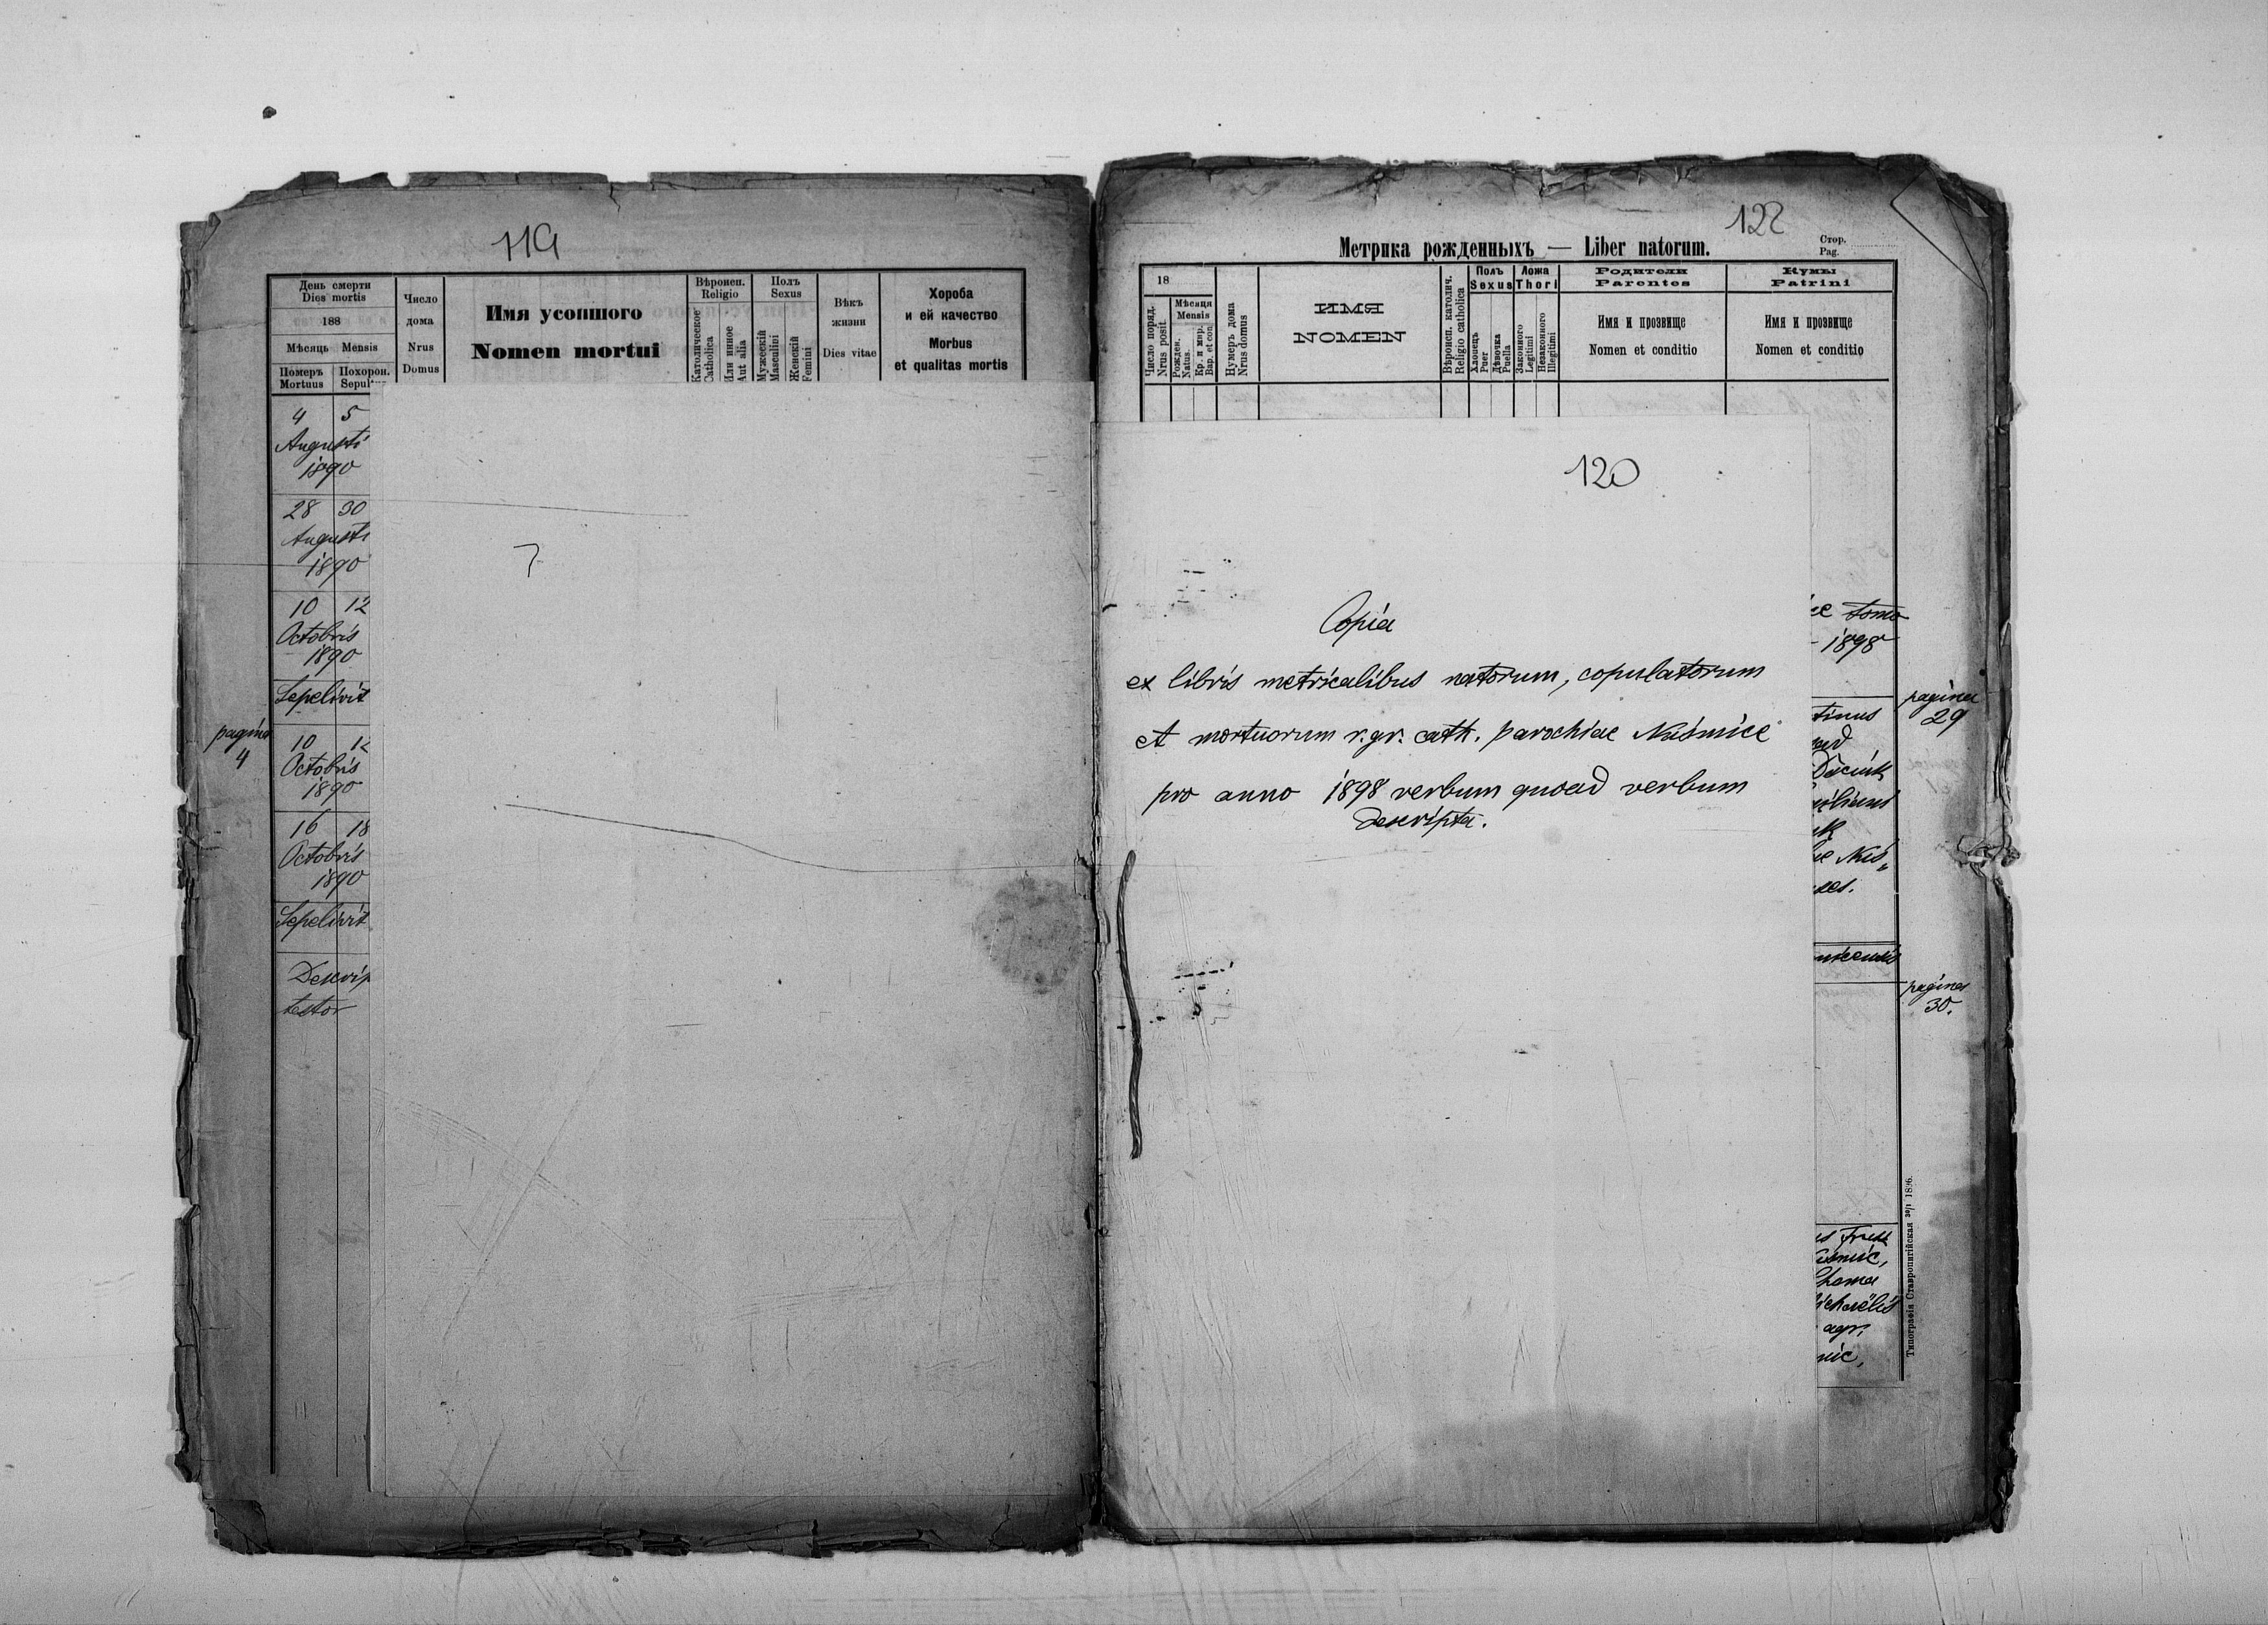 119
День смерти
Dies mortis
188
Мѣсяць Mensis
Померъ
Mortuus
Похорон.
Число
дома
Nrus
Domus
Имя усопшого
Nomen mortui
Вѣроисп.
Religio
Католическое
Catholica
Или инное
Aut alia
Полъ
Sexus
Мужескій
Masculini
Женскій
Feminini
Вѣкъ
жизни
Dies vitae
Хороба
и ей качество
Morbus
et qualitas mortis
4 5
Augusti
1890
28 30
Augusti
1890
10 12
Octobris
1890
Sepelivit
pagina
4
10 12
Octobris
1890
16 18
Octobris
1890
Sepelivit
Descrip
testor
122
Метрика рожденныхъ — Liber natorum.
Стор.
Pag.
18
Число поряд.
Nrus posit.
Мѣсяця
Mensis
Рожден.
Natus.
Кр. и мир.
Bap. et con
Нумеръ дома
Nrus domus
ИМЯ
NOMEN
Вѣроисп. католич.
Religio catholica
Полъ
Sexus
Хлопець
Puer
Дѣвочка
Puella
Ложа
Thori
Законного
Legitimi
Незаконного
Illegitimi
Родители
Parentes
Имя и прозвище
Nomen et conditio
Кумы
Patrini
Имя и прозвище
Nomen et conditio
120
Copia
ex libris metricalibus natorum, copulatorum
et mortuorum r. gr. cath. parochiae Niśmice
pro anno 1898 verbum quoad verbum
descripta.
tomo
1898
pagina
29
tinus
pagina
30.
agr.
Типографія Ставропигійская